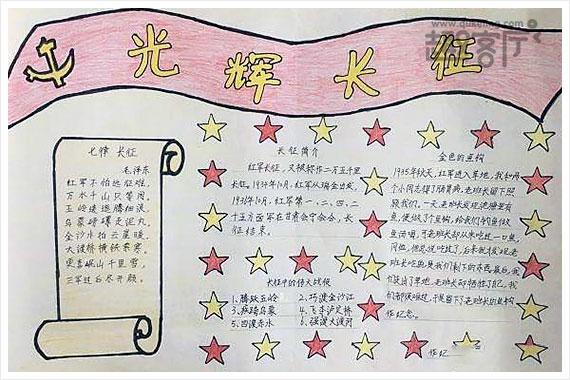 光辉长征
七律 长征
毛泽东
红军不怕远征难,
万水千山只等闲。
五岭逶迤腾细浪,
乌蒙磅礴走泥丸。
金沙水拍云崖暖,
大渡桥横铁索寒。
更喜岷山千里雪,
三军过后尽开颜。
长征简介
红军长征,又被称作二万五千里
长征。1934年10月,红军从瑞金出发,
1936年10月,红军第一、二、四、二
十五方面军在甘肃会宁会合,长
征结束。
长征中的伟大战役
1.腾跃五岭 2.巧渡金沙江
3.疾跨乌蒙 4.飞夺泸定桥
5.四渡赤水 6.强渡大渡河
金色的鱼钩
1935年秋天,红军进入草地,我和两
个小同志得了肠胃病,老班长留下照
顾我们,一天,老班长发现池塘里有
鱼,便做了个鱼钩,给我们钓鱼做
鱼汤喝,可老班长却从来吃过一口鱼,
问他,他总说吃过了,后来我
班长吃鱼是我们剩下的
走出了草地,老班长却牺牲了自己,我
们都很难过,于是留下了老班长的鱼钩
作纪念。
作纪
www.quketing.com
趣客厅